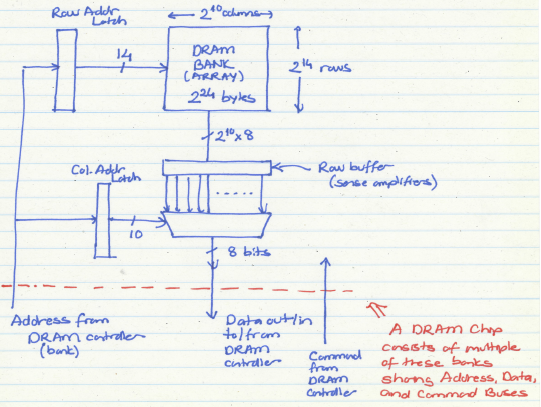 Row Addr
Latch
← 2^10 columns →
14
DRAM
BANK
(ARRAY)
2^24 bytes
2^14 rows
2^10 x 8
Row buffer
(sense amplifiers)
Col. Addr
Latch
10
8 bits
Address from
DRAM controller
(bank)
Data out/in
to/from
DRAM
controller
Command
from
DRAM
Controller
A DRAM Chip
consists of multiple
of these banks
sharing Address, Data,
and Command Buses